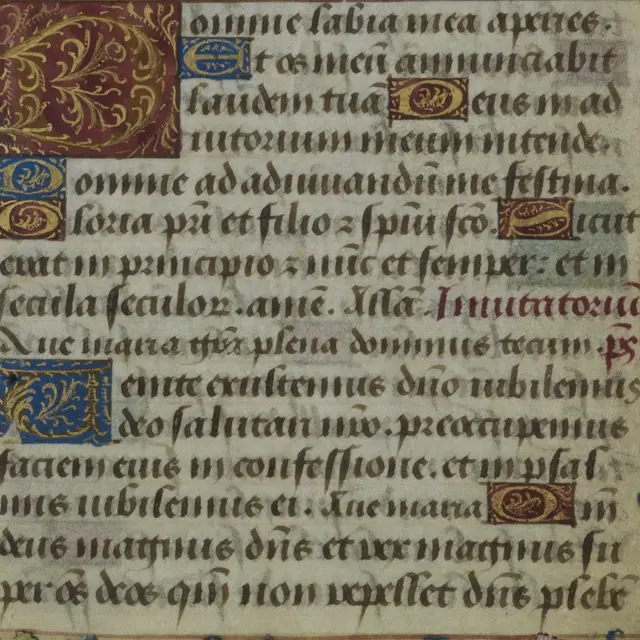 Domine labia mea aperies.
Et os meū annunciabit
laudem tuā Deus in ad
iutorium meum intende.
Domine ad adiuuandū me festina.
Gloria pr̄i et filio ⁊ spiūi scō. Sicut
erat in principio ⁊ nūc et semper: et in
secula seculoꝝ. amē. Allā. Inuitatoriū
Aue maria grā plena dominus tecum. ps̄
Uenite exultemus dn̄o iubilemus
deo salutari nr̄o. preoccupemus
faciem eius in confessione. et in psal
mis iubilemus ei. Aue maria Qm̄
deus magnus dn̄s et rex magnus su
per os̄ deos qm̄ non repellet dn̄s plebē